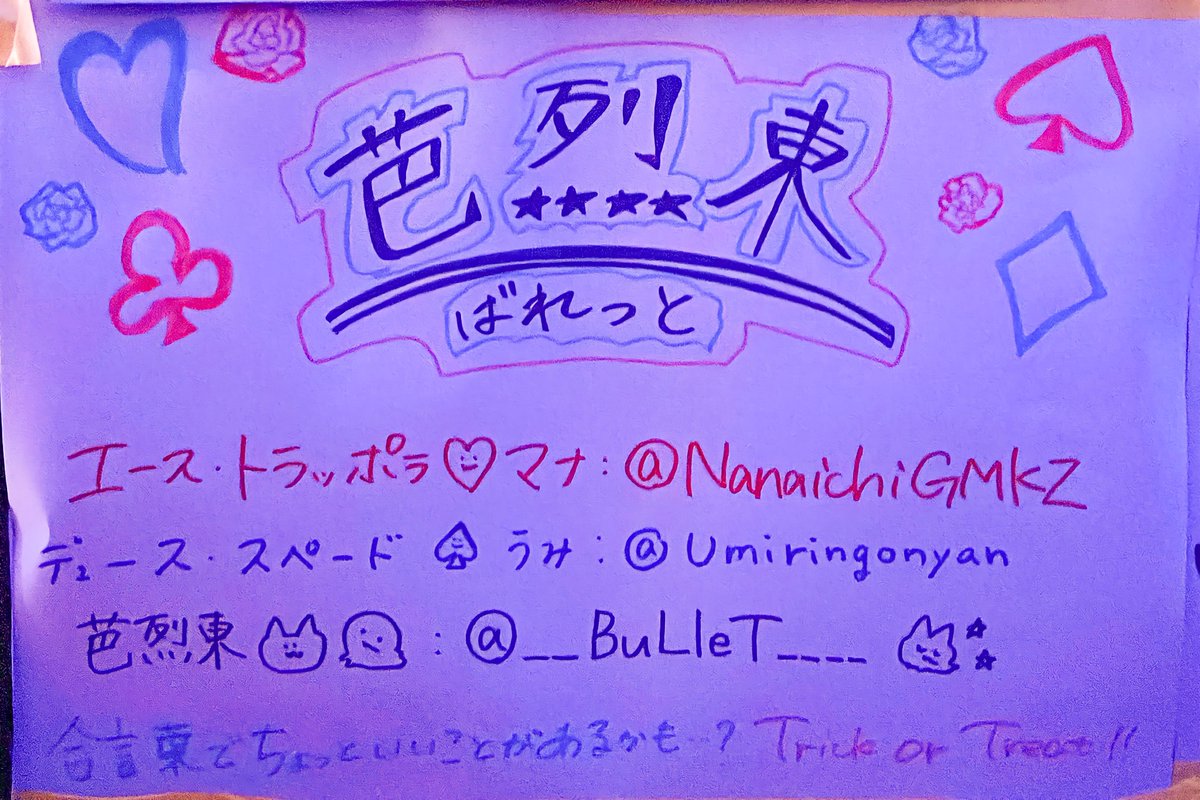 芭列東
★★★★
ばれっと
エース・トラッポラ♡マナ：@NanaichiGMKZ
デュース・スペード ♠ うみ：@Umiringonyan
芭烈東：@__BuLleT____
合言葉でちょっといいことがあるかも…？ Trick or Treat!!